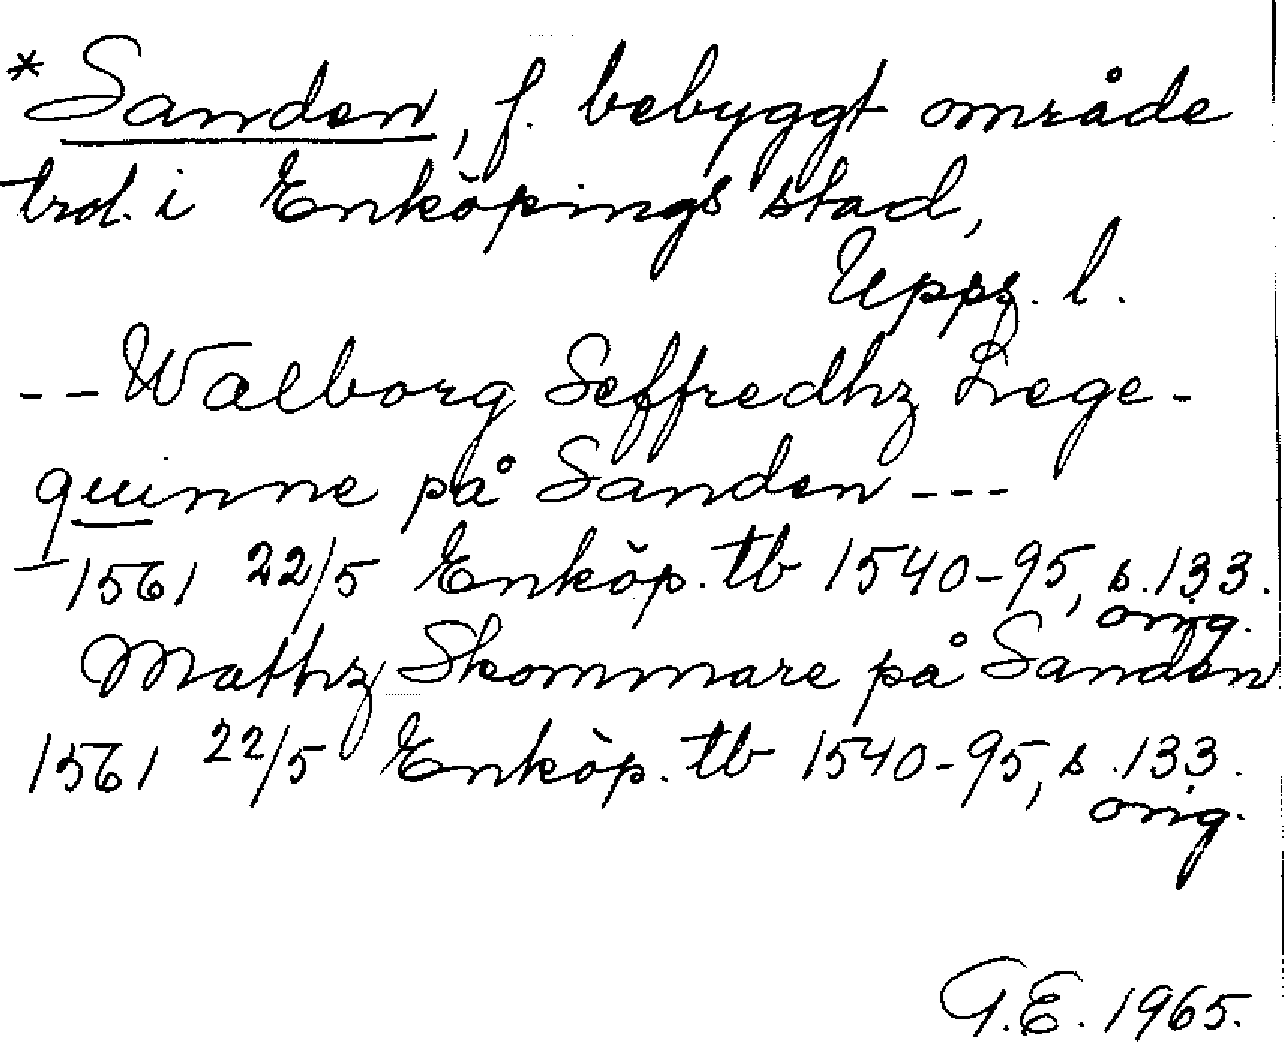 *Sanden, f. bebyggt område
trol. i Enköpings stad,
Upps. l.
--Walborg Seffredhz Lege-
quinne på Sanden---
1561 22/5 Enköp. tb 1540-95, s. 133.
orig.
Mathz Skommare på Sanden
1561 22/5 Enköp. tb 1540-95, s. 133.
orig.
G.E. 1965.